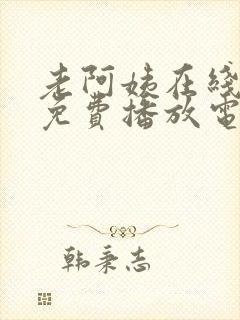 老阿姨在线
免费播放电
韩秉志